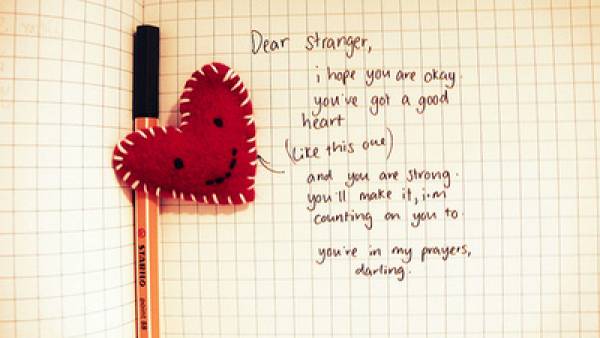 Dear stranger,
i hope you are okay.
you've got a good
heart
(like this one)
and you are strong.
you'll make it, i.m
counting on you to.
you're in my prayers,
darling.
STABILO point 88